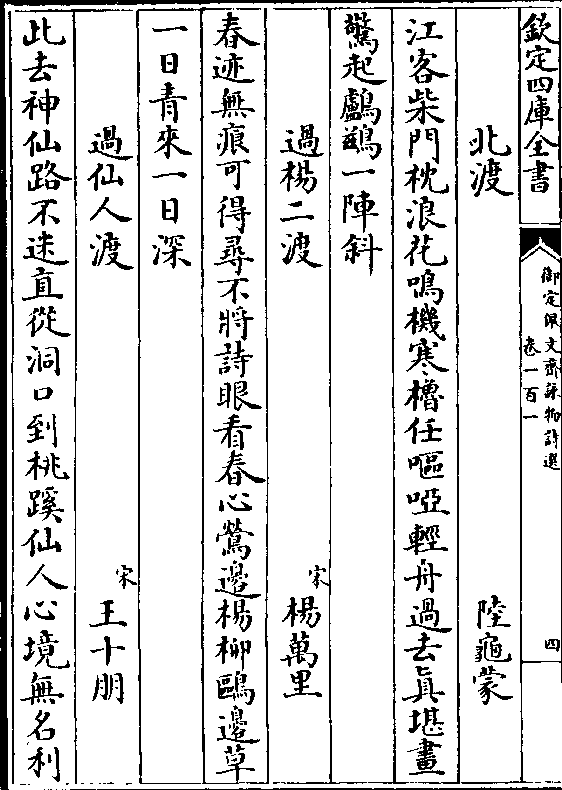 欽定四庫全書
御定佩文齋詠物詩選
卷一百一
四
北渡
陸龜蒙
江客柴門枕浪花鳴機寒櫓任嘔啞輕舟過去真堪畫
驚起鸕鷀一陣斜
過楊二渡
宋
楊萬里
春迹無痕可得尋不將詩眼看春心鶯邊楊柳鷗邊草
一日青來一日深
過仙人渡
宋
王十朋
此去神仙路不迷直從洞口到桃蹊仙人心境無名利